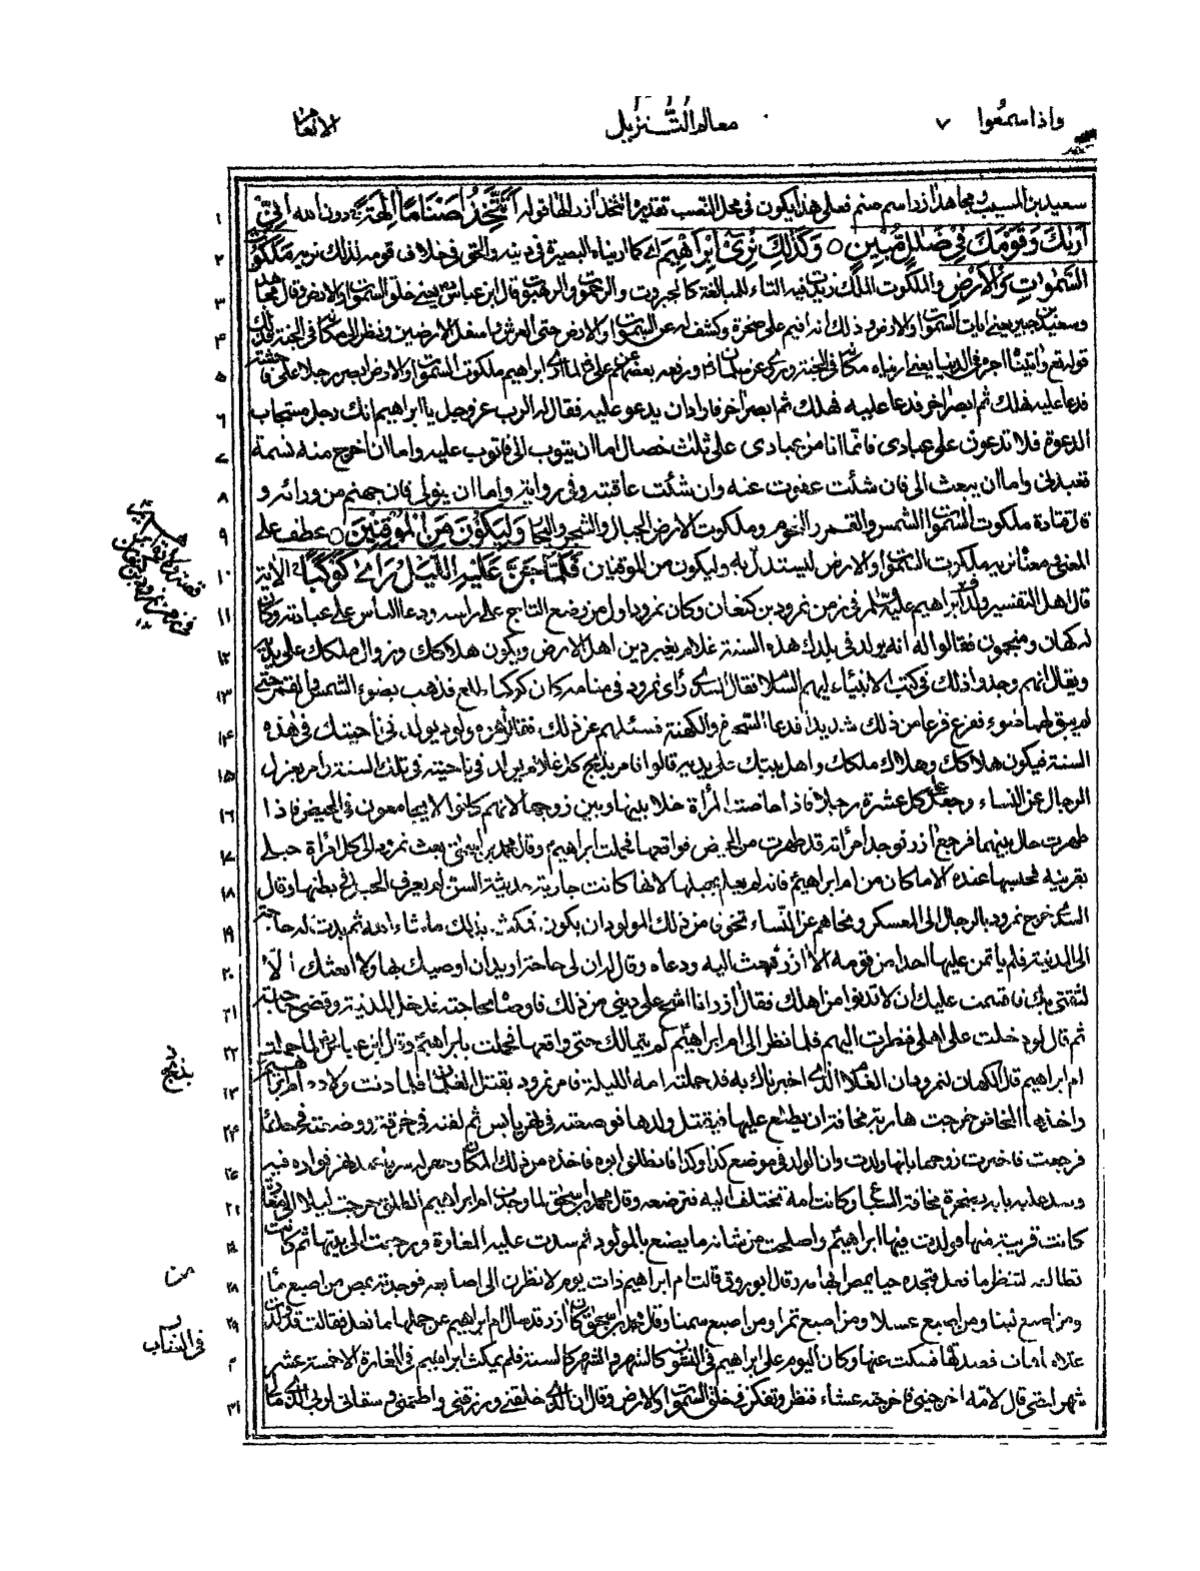 واذا سمعوا ٧ معالم التنزيل الانعام
سعيد بن المسيب ومجاهد ازر اسم صنم فعلى هذا يكون في محل النصب تقديره اتتخذ ازر الها قوله اَتَتَّخِذُ اَصْنَامًا اٰلِهَةً دون الله اِنِّيْٓ ١
اَرٰىكَ وَقَوْمَكَ فِيْ ضَلٰلٍ مُّبِيْنٍ ○ وَكَذٰلِكَ نُرِيْٓ اِبْرٰهِيْمَ اي كما اريناه البصيرة في دينه والحق في خلاف قومه كذلك نريه مَلَكُوْتَ ٢
السَّمٰوٰتِ وَالْاَرْضِ والملكوت الملك زيدت فيه التاء للمبالغة كالجبروت والرحموت والرهبوت قال ابن عباس يعني خلق السموات والارض وقال مجاهد ٣
وسعيد بن جبير يعني ايات السموات والارض وذلك انه اقيم على صخرة وكشف له عن السموات والارض حتى العرش واسفل الارضين ونظر الى مكانه في الجنة فذلك ٤
قوله تع واتيناه اجره في الدنيا يعني اريناه مكانه في الجنة وروي عن سلمان ورفعه بعضهم عن علي لما اري ابراهيم ملكوت السموات والارض ابصر رجلا على فاحشة ٥
فدعا عليه فهلك ثم ابصر اخر فدعا عليه فهلك ثم ابصر اخر فاراد ان يدعو عليه فقال له الرب عز وجل يا ابراهيم انك رجل مستجاب ٦
الدعوة فلا تدعون على عبادي فانما انا من عبادي على ثلث خصال اما ان يتوب الي فاتوب عليه واما ان اخرج منه نسمة ٧
تعبدني واما ان يبعث الي فان شئت عفوت عنه وان شئت عاقبته وفي رواية واما ان يتولى فان جهنم من ورائه و ٨
قال قتادة ملكوت السموات الشمس والقمر والنجوم وملكوت الارض الجبال والشجر والبحار وَلِيَكُوْنَ مِنَ الْمُوْقِنِيْنَ ○ عطف على ٩
المعنى ومعناه نريه ملكوت السموات والارض ليستدل به وليكون من الموقنين فَلَمَّا جَنَّ عَلَيْهِ الَّيْلُ رَاٰ كَوْكَبًا الاية ١٠
قال اهل التفسير ولد ابراهيم عليه السلام في زمن نمرود بن كنعان وكان نمرود اول من وضع التاج على راسه ودعا الناس على عبادته وكان ١١
له كهان ومنجمون فقالوا له انه يولد في بلدك هذه السنة غلام يغير دين اهل الارض ويكون هلاكك وزوال ملكك على يديه ١٢
ويقال انهم وجدوا ذلك في كتب الانبياء عليهم السلام فقال السدي راى نمرود في منامه كان كوكبا طلع فذهب بضوء الشمس والقمر حتى ١٣
لم يبق لهما ضوء ففزع فزعا من ذلك شديدا فدعا السحرة والكهنة فسئلهم عن ذلك فقالوا هو مولود يولد في ناحيتك في هذه ١٤
السنة فيكون هلاكك وهلاك ملكك واهل بيتك على يديه قالوا فامر بذبح كل غلام يولد في ناحيته في تلك السنة وامر بعزل ١٥
الرجال عن النساء وجعل على كل عشرة رجلا فاذا حاضت المرأة خلا بينها وبين زوجها لانهم كانوا لا يجامعون في الحيض فاذا ١٦
طهرت حال بينهما فرجع ازر فوجد امرأته قد طهرت من الحيض فواقعها فحملت ابراهيم وقال محمد بن اسحق بعث نمرود الى كل امرأة حبلى ١٧
بقرينه فحبسها عنده الا ما كان من ام ابراهيم فانه لم يعلم بحبلها لانها كانت جارية حديثة السن لم يعرف الحبل في بطنها وقال ١٨
السدي خرج نمرود بالرجال الى العسكر ونحاهم عن النساء تخوفا من ذلك المولود ان يكون فمكث بذلك ما شاء الله ثم بدت له حاجة ١٩
الى المدينة فلم يأتمن عليها احدا من قومه الا ازر فبعث اليه ودعاه وقال له ان لي حاجة اريد ان اوصيك بها ولا ابعثك الا ٢٠
لثقتي بك فاقسمت عليك ان لا تدنوا من اهلك فقال ازر انا اشح على ديني من ذلك فاوصاه بحاجته فدخل المدينة وقضى حاجته ٢١
ثم قال لو دخلت على اهلي فنظرت اليهم فلما نظر الى ام ابراهيم لم يتمالك حتى واقعها فحملت بابراهيم وقال ابن عباس لما حملت ٢٢
ام ابراهيم قال الكهان لنمرود ان الغلام الذي اخبرناك به قد حملته امه الليلة فامر نمرود بقتل الغلمان فلما دنت ولادة ام ابراهيم ٢٣
واخذها المخاض خرجت هاربة مخافة ان يطلع عليها فيقتل ولدها فوضعته في نهر يابس ثم لفته في خرقة ووضعته في حلفاء ٢٤
فرجعت فاخبرت زوجها بانها ولدت وان الولد في موضع كذا وكذا فانطلق ابوه فاخذه من ذلك المكان وحفر له سربا عند نهر فواراه فيه ٢٥
وسد عليه بابه بصخرة مخافة السباع وكانت امه تختلف اليه فترضعه وقال محمد بن اسحق لما وجدت ام ابراهيم الطلق خرجت ليلا الى مغارة ٢٦
كانت قريبة منها فولدت فيها ابراهيم واصلحت من شانه ما يصنع بالمولود ثم سدت عليه المغارة ورجعت الى بيتها ثم كانت ٢٧
تطالعه لتنظر ما فعل فتجده حيا يمص ابهامه وقال ابو روق قالت ام ابراهيم ذات يوم لانظرن الى اصابعه فوجدته يمص من اصبع ماء ٢٨
ومن اصبع لبنا ومن اصبع عسلا ومن اصبع تمرا ومن اصبع سمنا وقال محمد بن اسحق كان ازر قد سال ام ابراهيم عن حملها ما فعل فقالت قد ولدت ٢٩
غلاما فمات فصدقها فسكت عنها وكان اليوم على ابراهيم في الشبان كالشهر والشهر كالسنة فلم يمكث ابراهيم في المغارة الا خمسة عشر ٣٠
شهرا حتى قال لامه اخرجيني فاخرجته عشاء فنظر وتفكر في خلق السموات والارض وقال ان الذي خلقني ورزقني واطعمني وسقاني لربي الذي مالي ٣١
بذبح
من
في الشباب